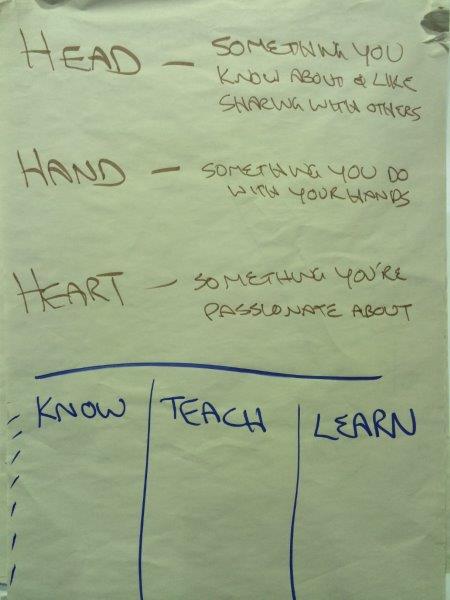 HEAD — SOMETHING YOU
KNOW ABOUT & LIKE
SHARING WITH OTHERS
HAND — SOMETHING YOU DO
WITH YOUR HANDS
HEART — SOMETHING YOU'RE
PASSIONATE ABOUT
KNOW TEACH LEARN